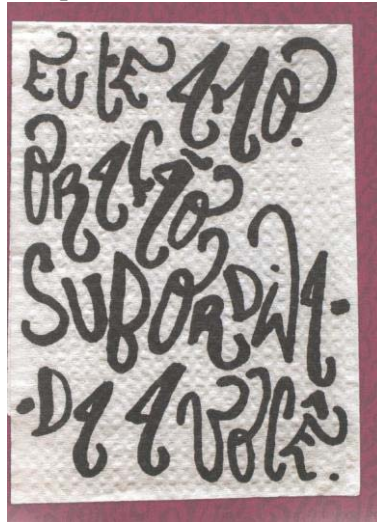 EU TE AMO.
ORAÇÃO
SUBORDINA-
-DA A VOCÊ.